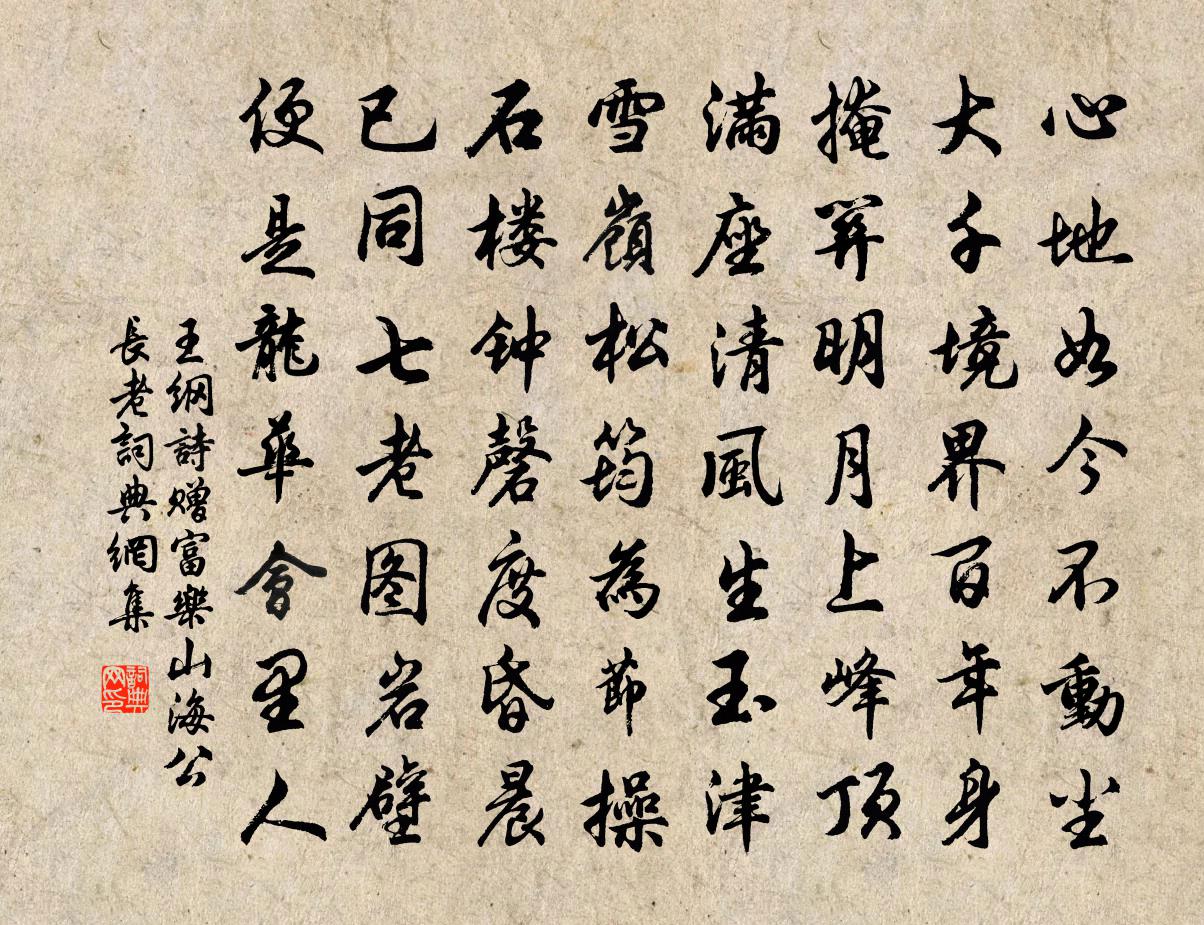 心地如今不動尘
大千境界百年身
掩关明月上峰顶
满座清風生玉津
雪嶺松筠為節操
石楼钟磬度昏晨
已同七老图岩壁
便是龍華會里人
王綱詩赠富樂山海公
長老詞典網集
詞典网印